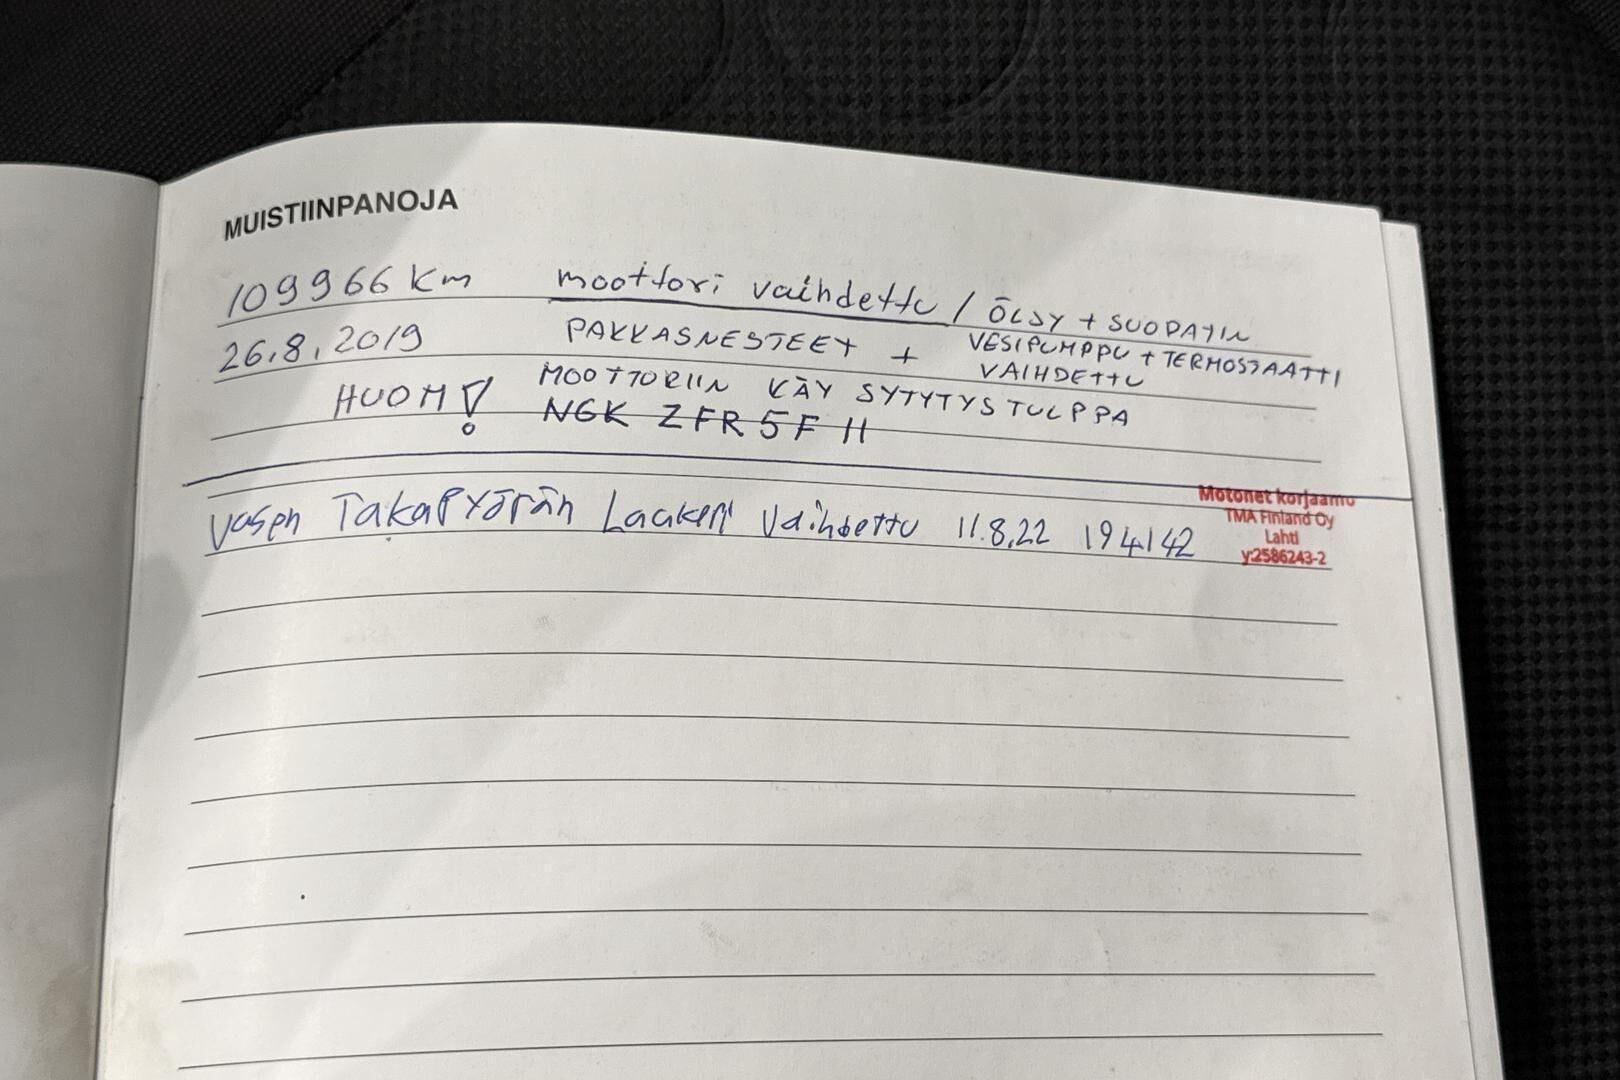 MUISTIINPANOJA
109966 Km moottori vaihdettu / ÖLJY + SUODATIN
26.8.2019 PAKKASNESTEET + VESIPUMPPU + TERMOSTAATTI
VAIHDETTU
HUOM! MOOTTORIIN KÄY SYTYTYSTULPPA
NGK ZFR 5F 11
Vasen TakaPYÖrän Laakeri Vaihdettu 11.8.22 194142
Motonet korjaamo
TMA Finland Oy
Lahti
y:2586243-2